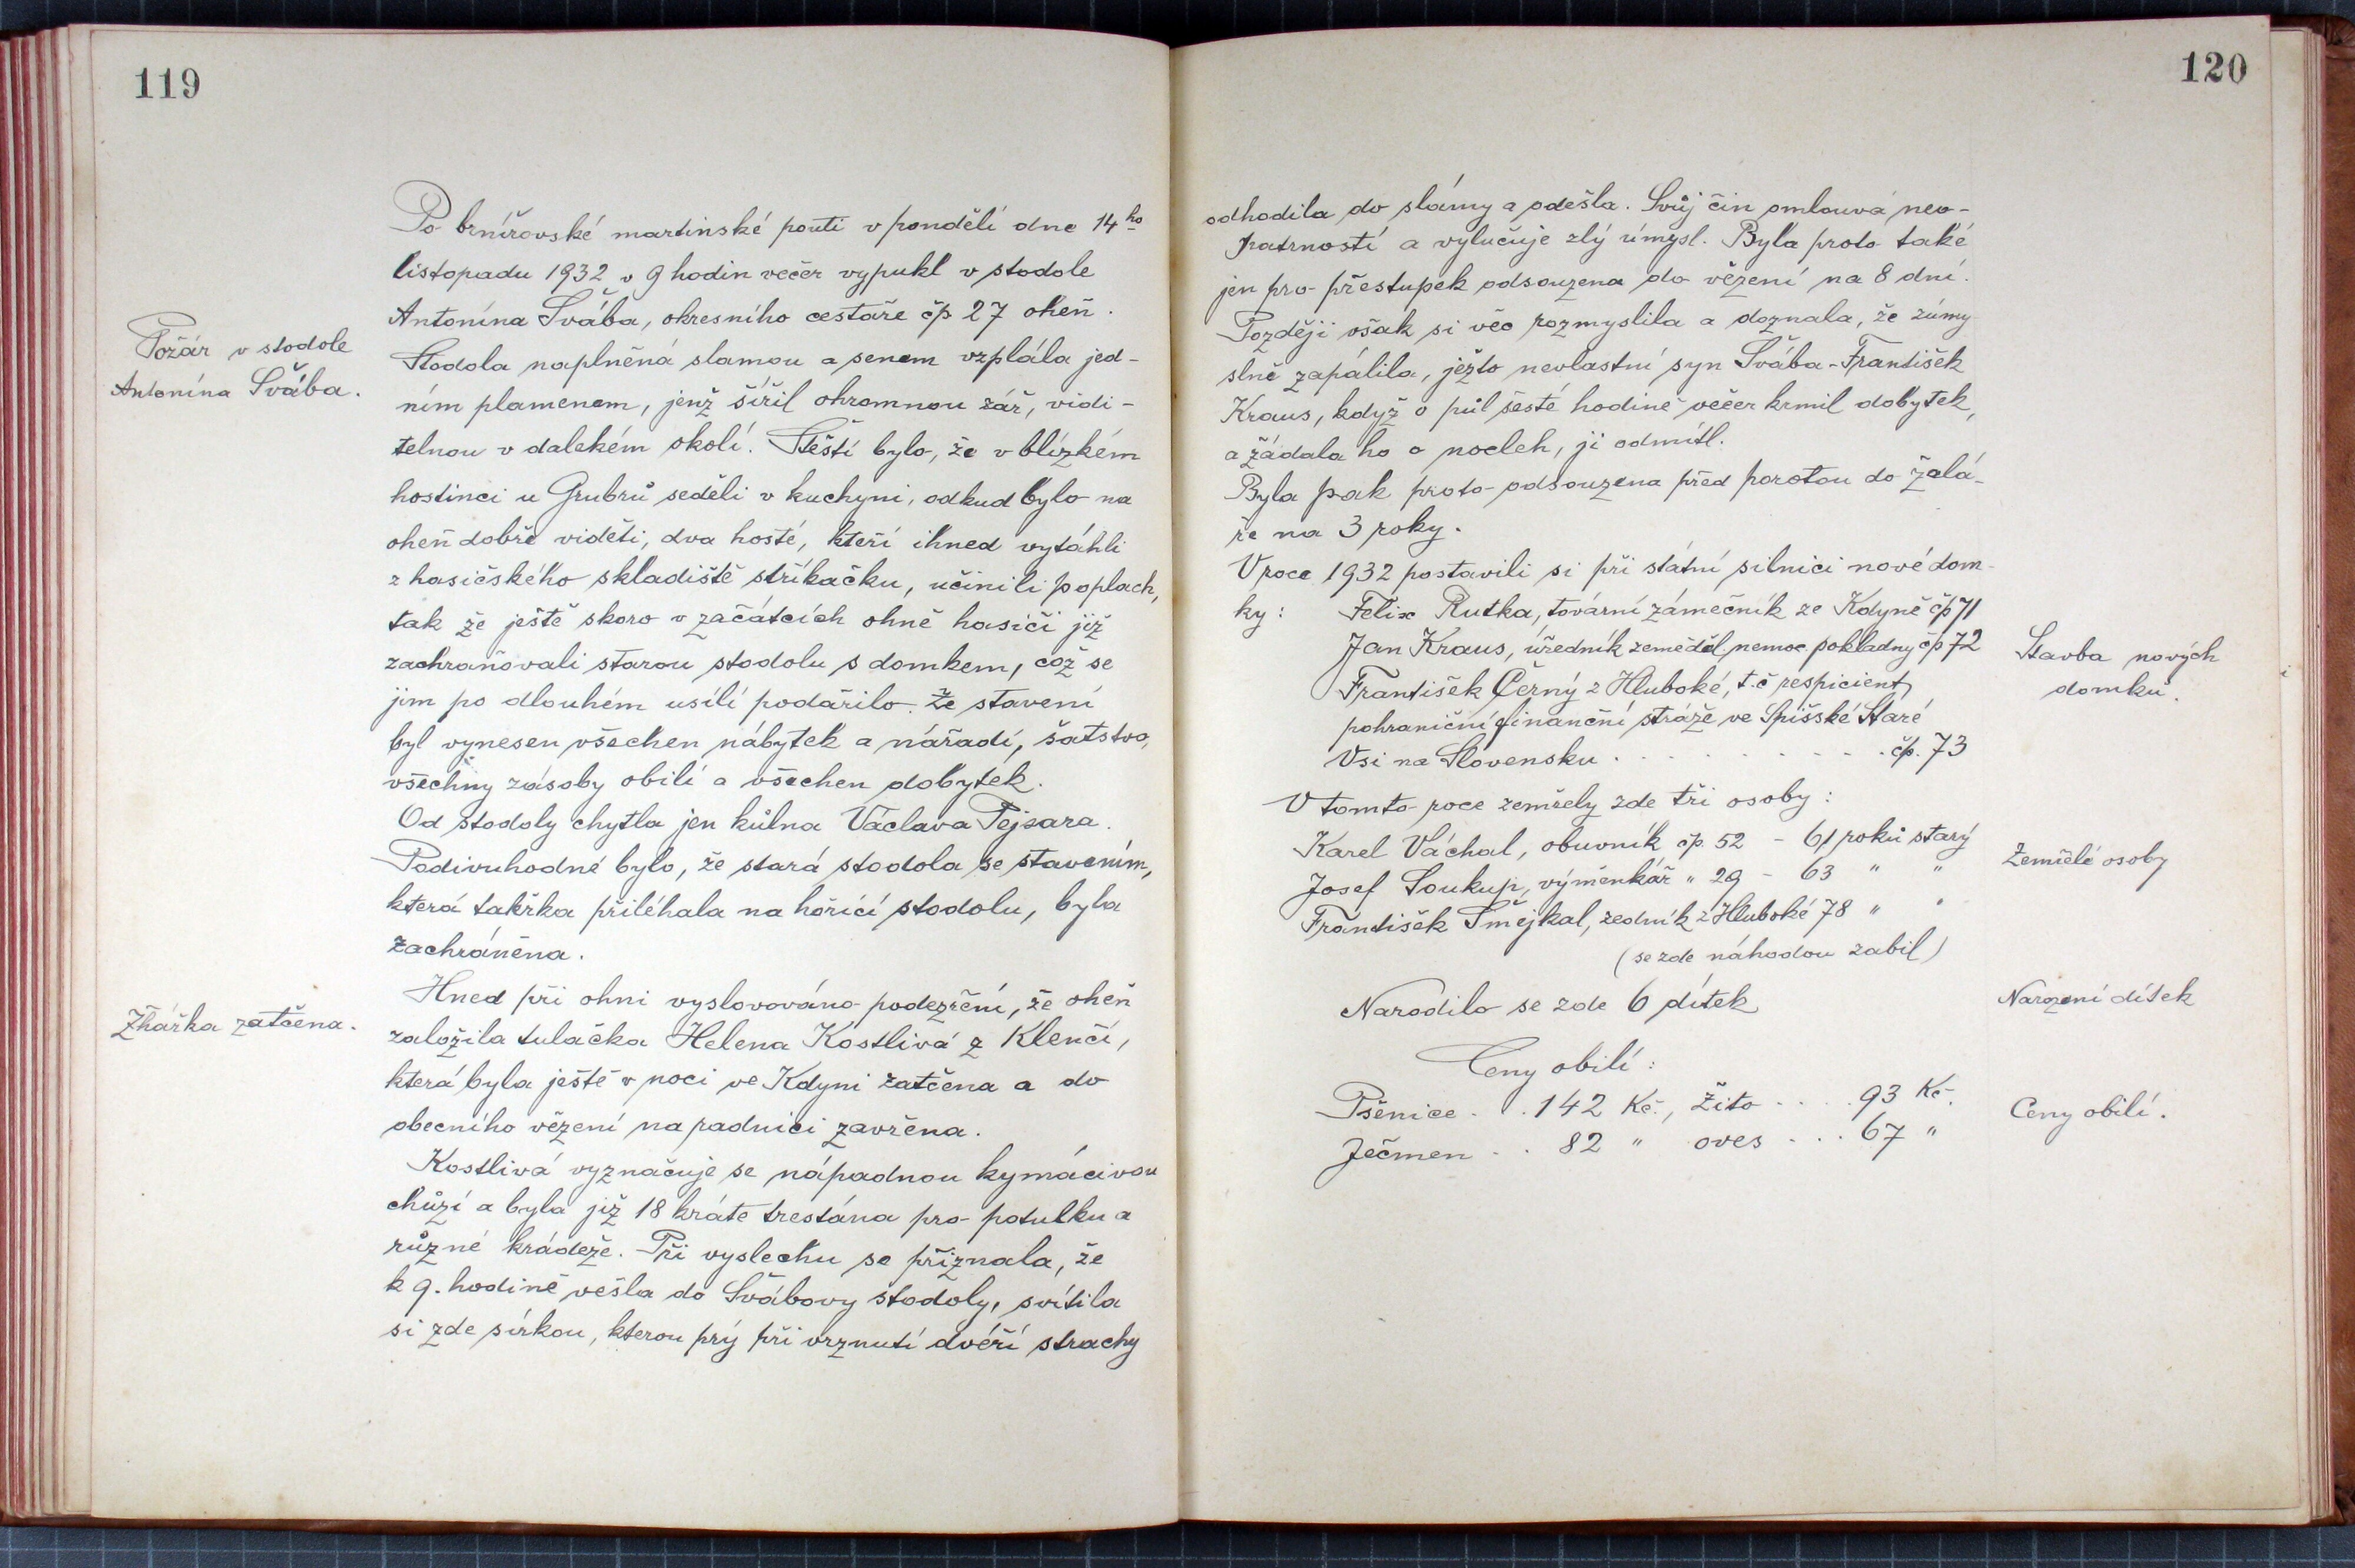 119
Po brnířovské martinské pouti v pondělí dne 14ho
listopadu 1932 v 9 hodin večer vypukl v stodole
Antonína Švába, okresního cestáře čp 27 oheň.
Požár v stodole
Antonína Švába.
Stodola naplněná slamou a senem vzplála jed-
ním plamenem, jenž šířil ohromnou zář, vidi-
telnou v dalekém okolí. Štěstí bylo, že v blízkém
hostinci u Grubrů seděli v kuchyni, odkud bylo na
oheň dobře viděti, dva hosté, kteří ihned vytáhli
z hasičského skladiště stříkačku, učinili poplach,
tak že ještě skoro v začátcích ohně hasiči již
zachraňovali starou stodolu s domkem, což se
jim po dlouhém usílí podařilo. Ze stavení
byl vynesen všechen nábytek a nářadí, šatstvo,
všechny zásoby obilí a všechen dobytek.
Od stodoly chytla jen kůlna Václava Pejsara.
Podivuhodné bylo, že stará stodola se stavením,
která takřka přiléhala na hořící stodolu, byla
zachráněna.
Hned při ohni vyslovováno podezření, že oheň
Žhářka zatčena.
založila tulačka Helena Kostlivá z Klenčí,
která byla ještě v noci ve Kdyni zatčena a do
obecního vězení na radnici zavřena.
Kostlivá vyznačuje se nápadnou kymácivou
chůzí a byla již 18 kráte trestána pro potulku a
různé krádeže. Při vyslechu se přiznala, že
k 9. hodině vešla do Švábovy stodoly, svítila
si zde sírkou, kterou prý při vrznutí dvéří strachy
120
odhodila do slámy a odešla. Svůj čin omlouvá neo-
patrností a vylučuje zlý úmysl. Byla proto také
jen pro přestupek odsouzena do vězení na 8 dní.
Později však si věc rozmyslila a doznala, že zúmy-
slně zapálila, ježto nevlastní syn Švába - František
Kraus, když o půl šesté hodině večer krmil dobytek,
a žádala ho o nocleh, ji odmítl.
Byla pak proto odsouzena před porotou do žalá-
ře na 3 roky.
V roce 1932 postavili si při státní silnici nové dom-
ky: Felix Rutka, tovární zámečník ze Kdyně čp 71
Jan Kraus, úředník zeměděl. nemoc. pokladny čp 72
Stavba nových
domků.
František Černý z Hluboké, t.č respicient
pohraniční finanční stráže ve Spišské Staré
Vsi na Slovensku . . . . . . . . . čp. 73
V tomto roce zemřely zde tři osoby:
Karel Váchal, obuvník čp. 52 - 61 roků starý
Zemřelé osoby
Josef Soukup, výměnkář " 29 - 63 " "
František Šmejkal, zedník z Hluboké 78 " "
(se zde náhodou zabil)
Narodilo se zde 6 dítek
Narození dítek
Ceny obilí:
Pšenice . . 142 Kč., Žito . . . . 93 Kč.
Ceny obilí.
Ječmen . . 82 " oves . . . 67 "